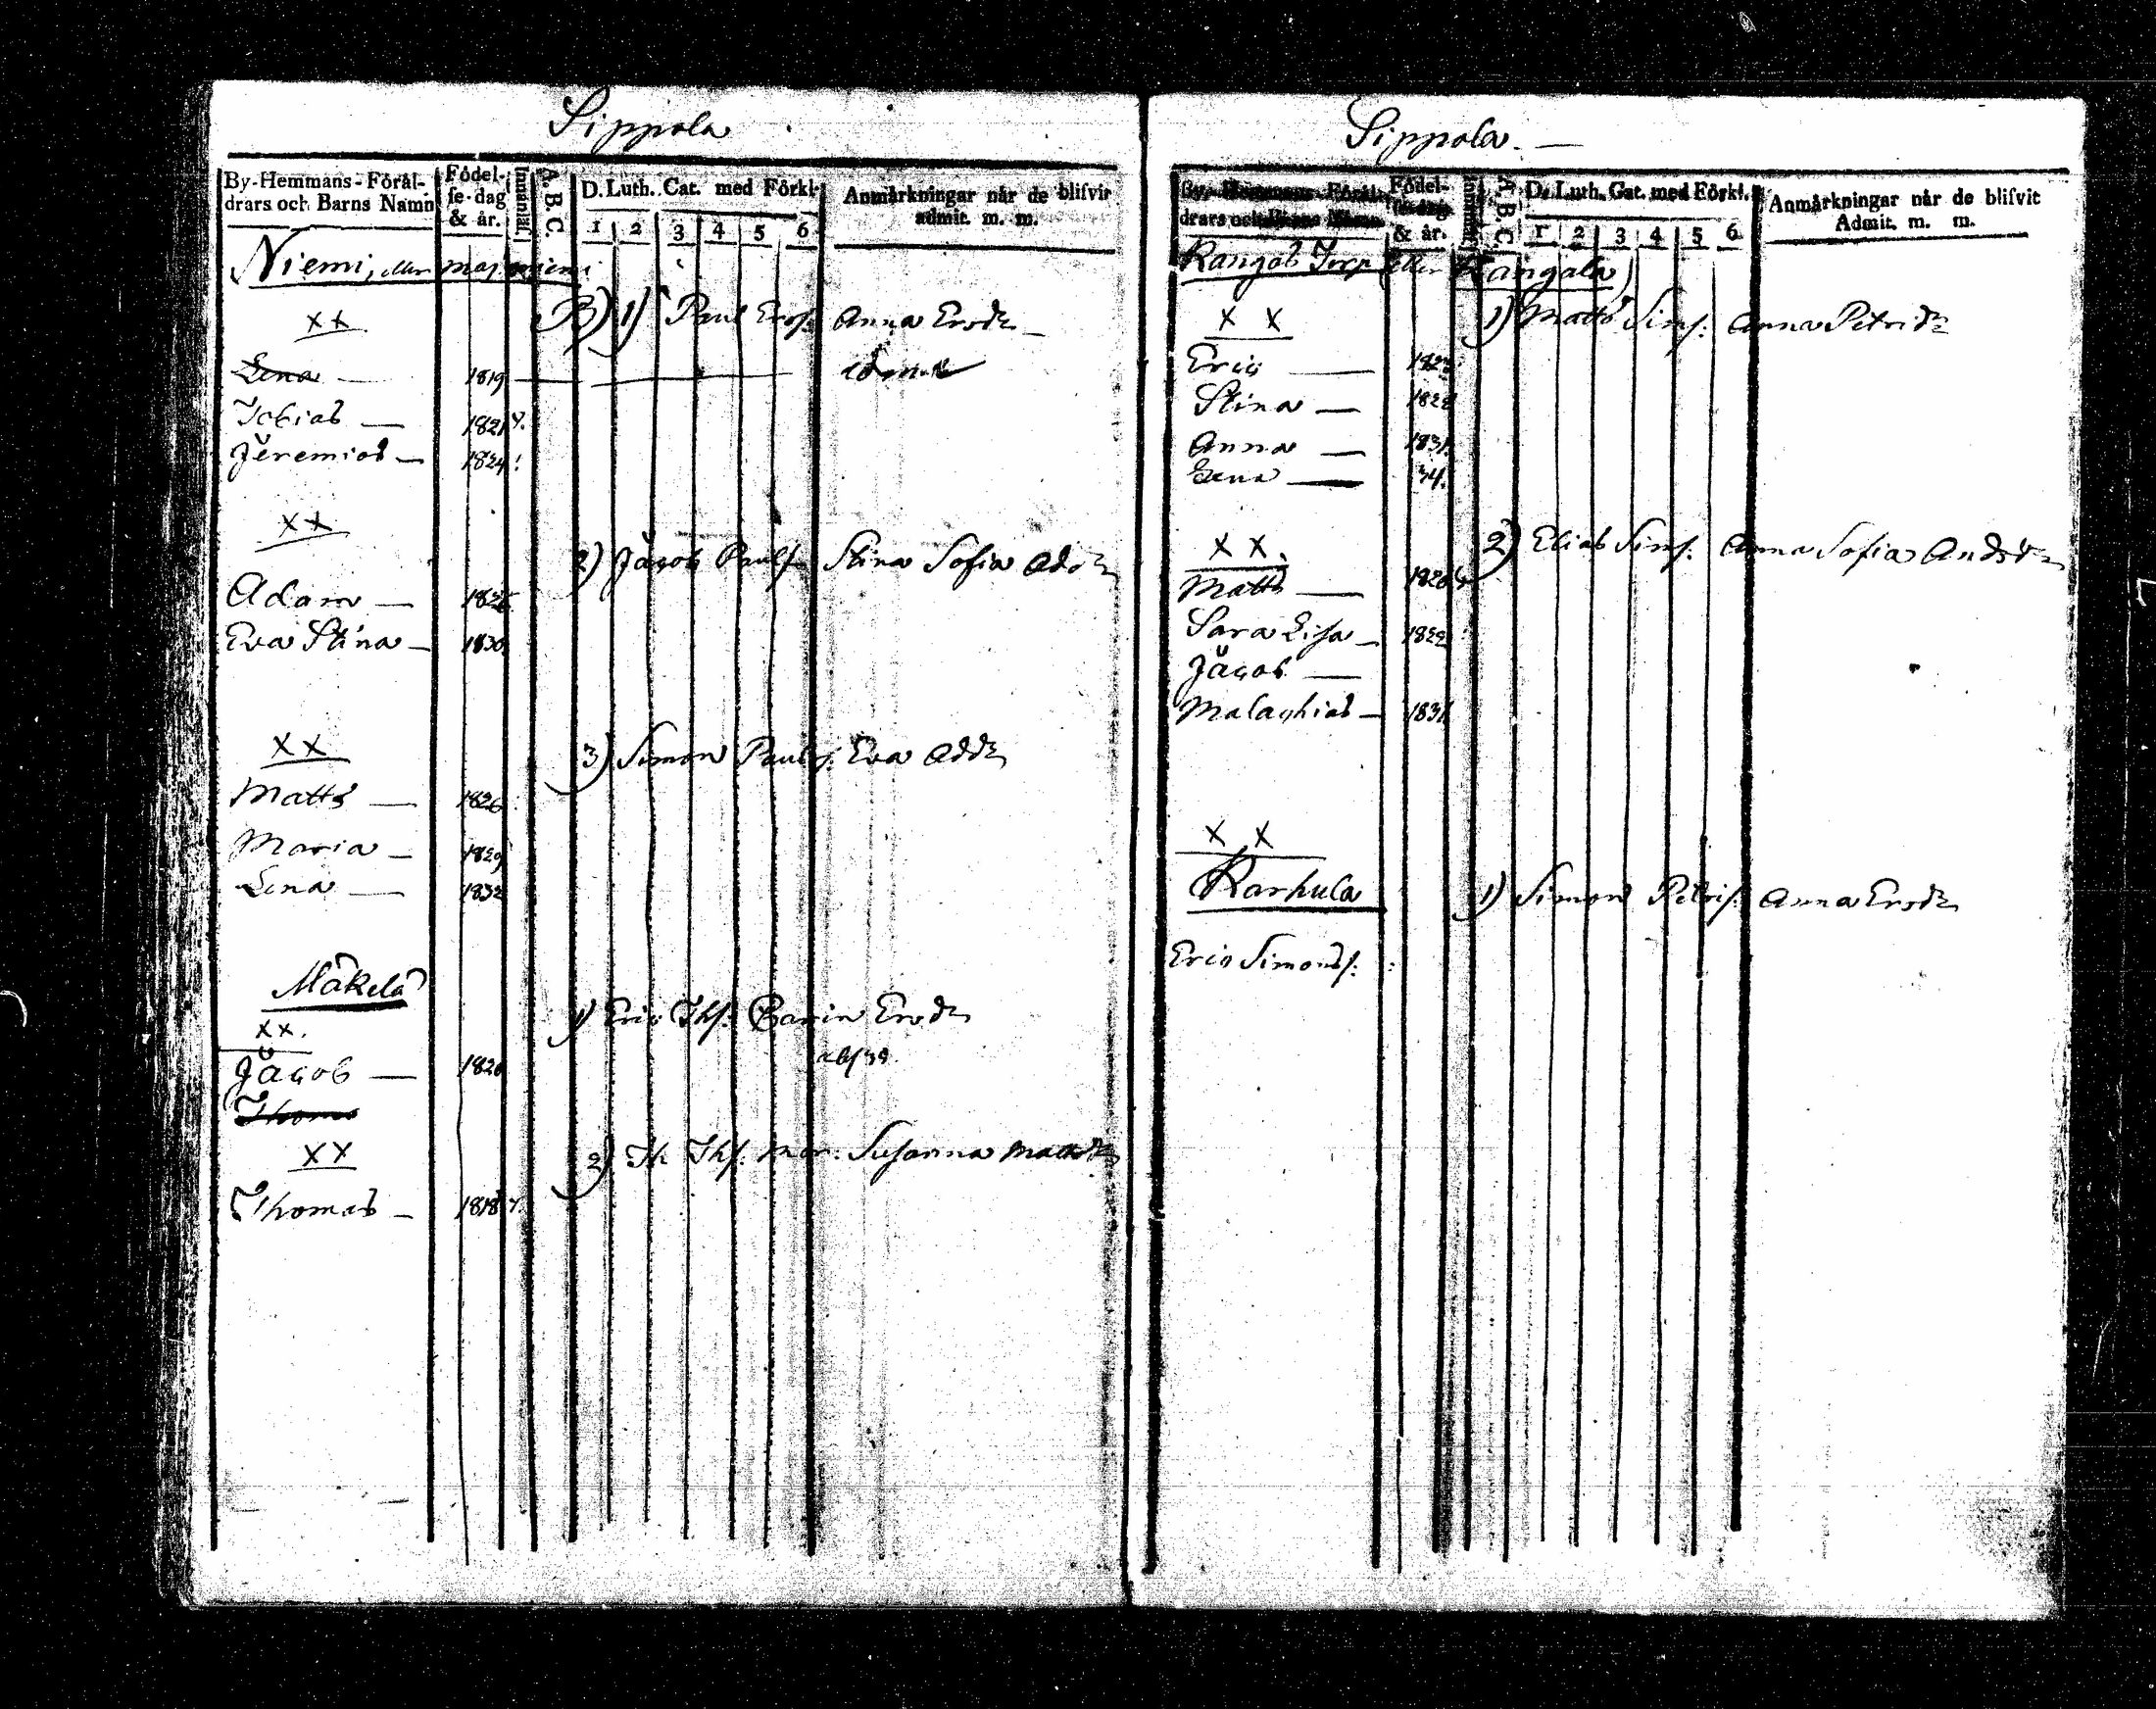 Sippola
By-Hemmans-Föräl-
drars och Barns Namn
Födel-
se-dag
& år.
Innanläs.
A. B. C.
D. Luth. Cat. med Förkl.
1 2 3 4 5 6
Anmärkningar när de blifvit
admit. m. m.
Niemi, eller
B) 1) Paul Ersf: Anna Ersdr
xx
Lena — 1819
Tobias — 1821
Jeremias — 1824
xx
2) Jacob Paulsf Stina Sofia Addr
Adam — 182
Eva Stina — 1830
xx
3) Simon Paulsf: Eva Addr
Matts — 1826
Maria — 1829
Lena — 1832
Mäkelä
1) Eric Thsf: Carin Ersdr
xx.
Jacob — 1826
Thomas
xx
2) Th Thsf: Mar: Susanna Mattsdr
Thomas — 1818
Sippola. —
By-Hemmans-Föräl-
drars och Barns Namn
Födel-
se-dag
& år.
A. B. C.
D. Luth. Cat. med Förkl.
1 2 3 4 5 6
Anmärkningar når de blifvit
Admit. m. m.
Kangas Torp (eller Kangala)
x x
1) Matts Simsf: Anna Petridr
Eric — 182
Stina — 1828
Anna — 1831
Lena — 34.
x x.
2) Elias Simsf: Anna Sofia Andsdr
Matts — 1826
Sara Lisa — 1829
Jacob —
Malachias — 1831
x x
Karhula
1) Simon Petrisf: Anna Ersdr
Eric Simonsf: